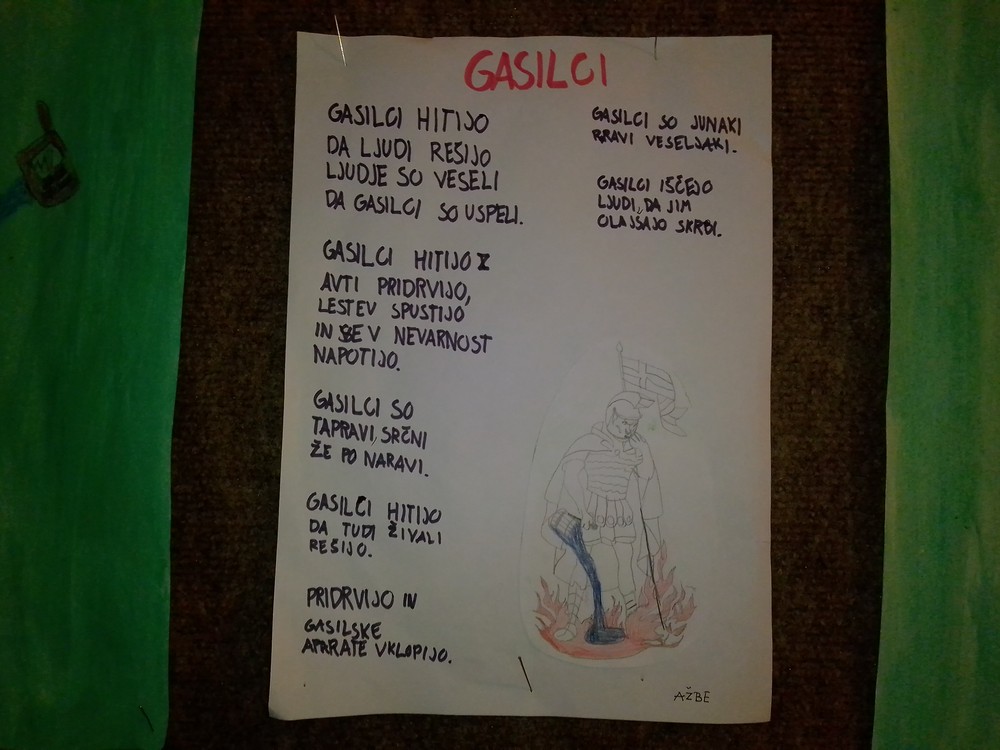 GASILCI
GASILCI HITIJO
DA LJUDI REŠIJO
LJUDJE SO VESELI
DA GASILCI SO USPELI.
GASILCI HITIJO
AVTI PRIDRVIJO,
LESTEV SPUSTIJO
IN SE V NEVARNOST
NAPOTIJO.
GASILCI SO
TAPRAVI, SRČNI
ŽE PO NARAVI.
GASILCI HITIJO
DA TUDI ŽIVALI
REŠIJO.
PRIDRVIJO IN
GASILSKE
APARATE VKLOPIJO.
GASILCI SO JUNAKI
PRAVI VESELJAKI.
GASILCI IŠČEJO
LJUDI, DA JIM
OLAJŠAJO SKRBI.
AŽBE